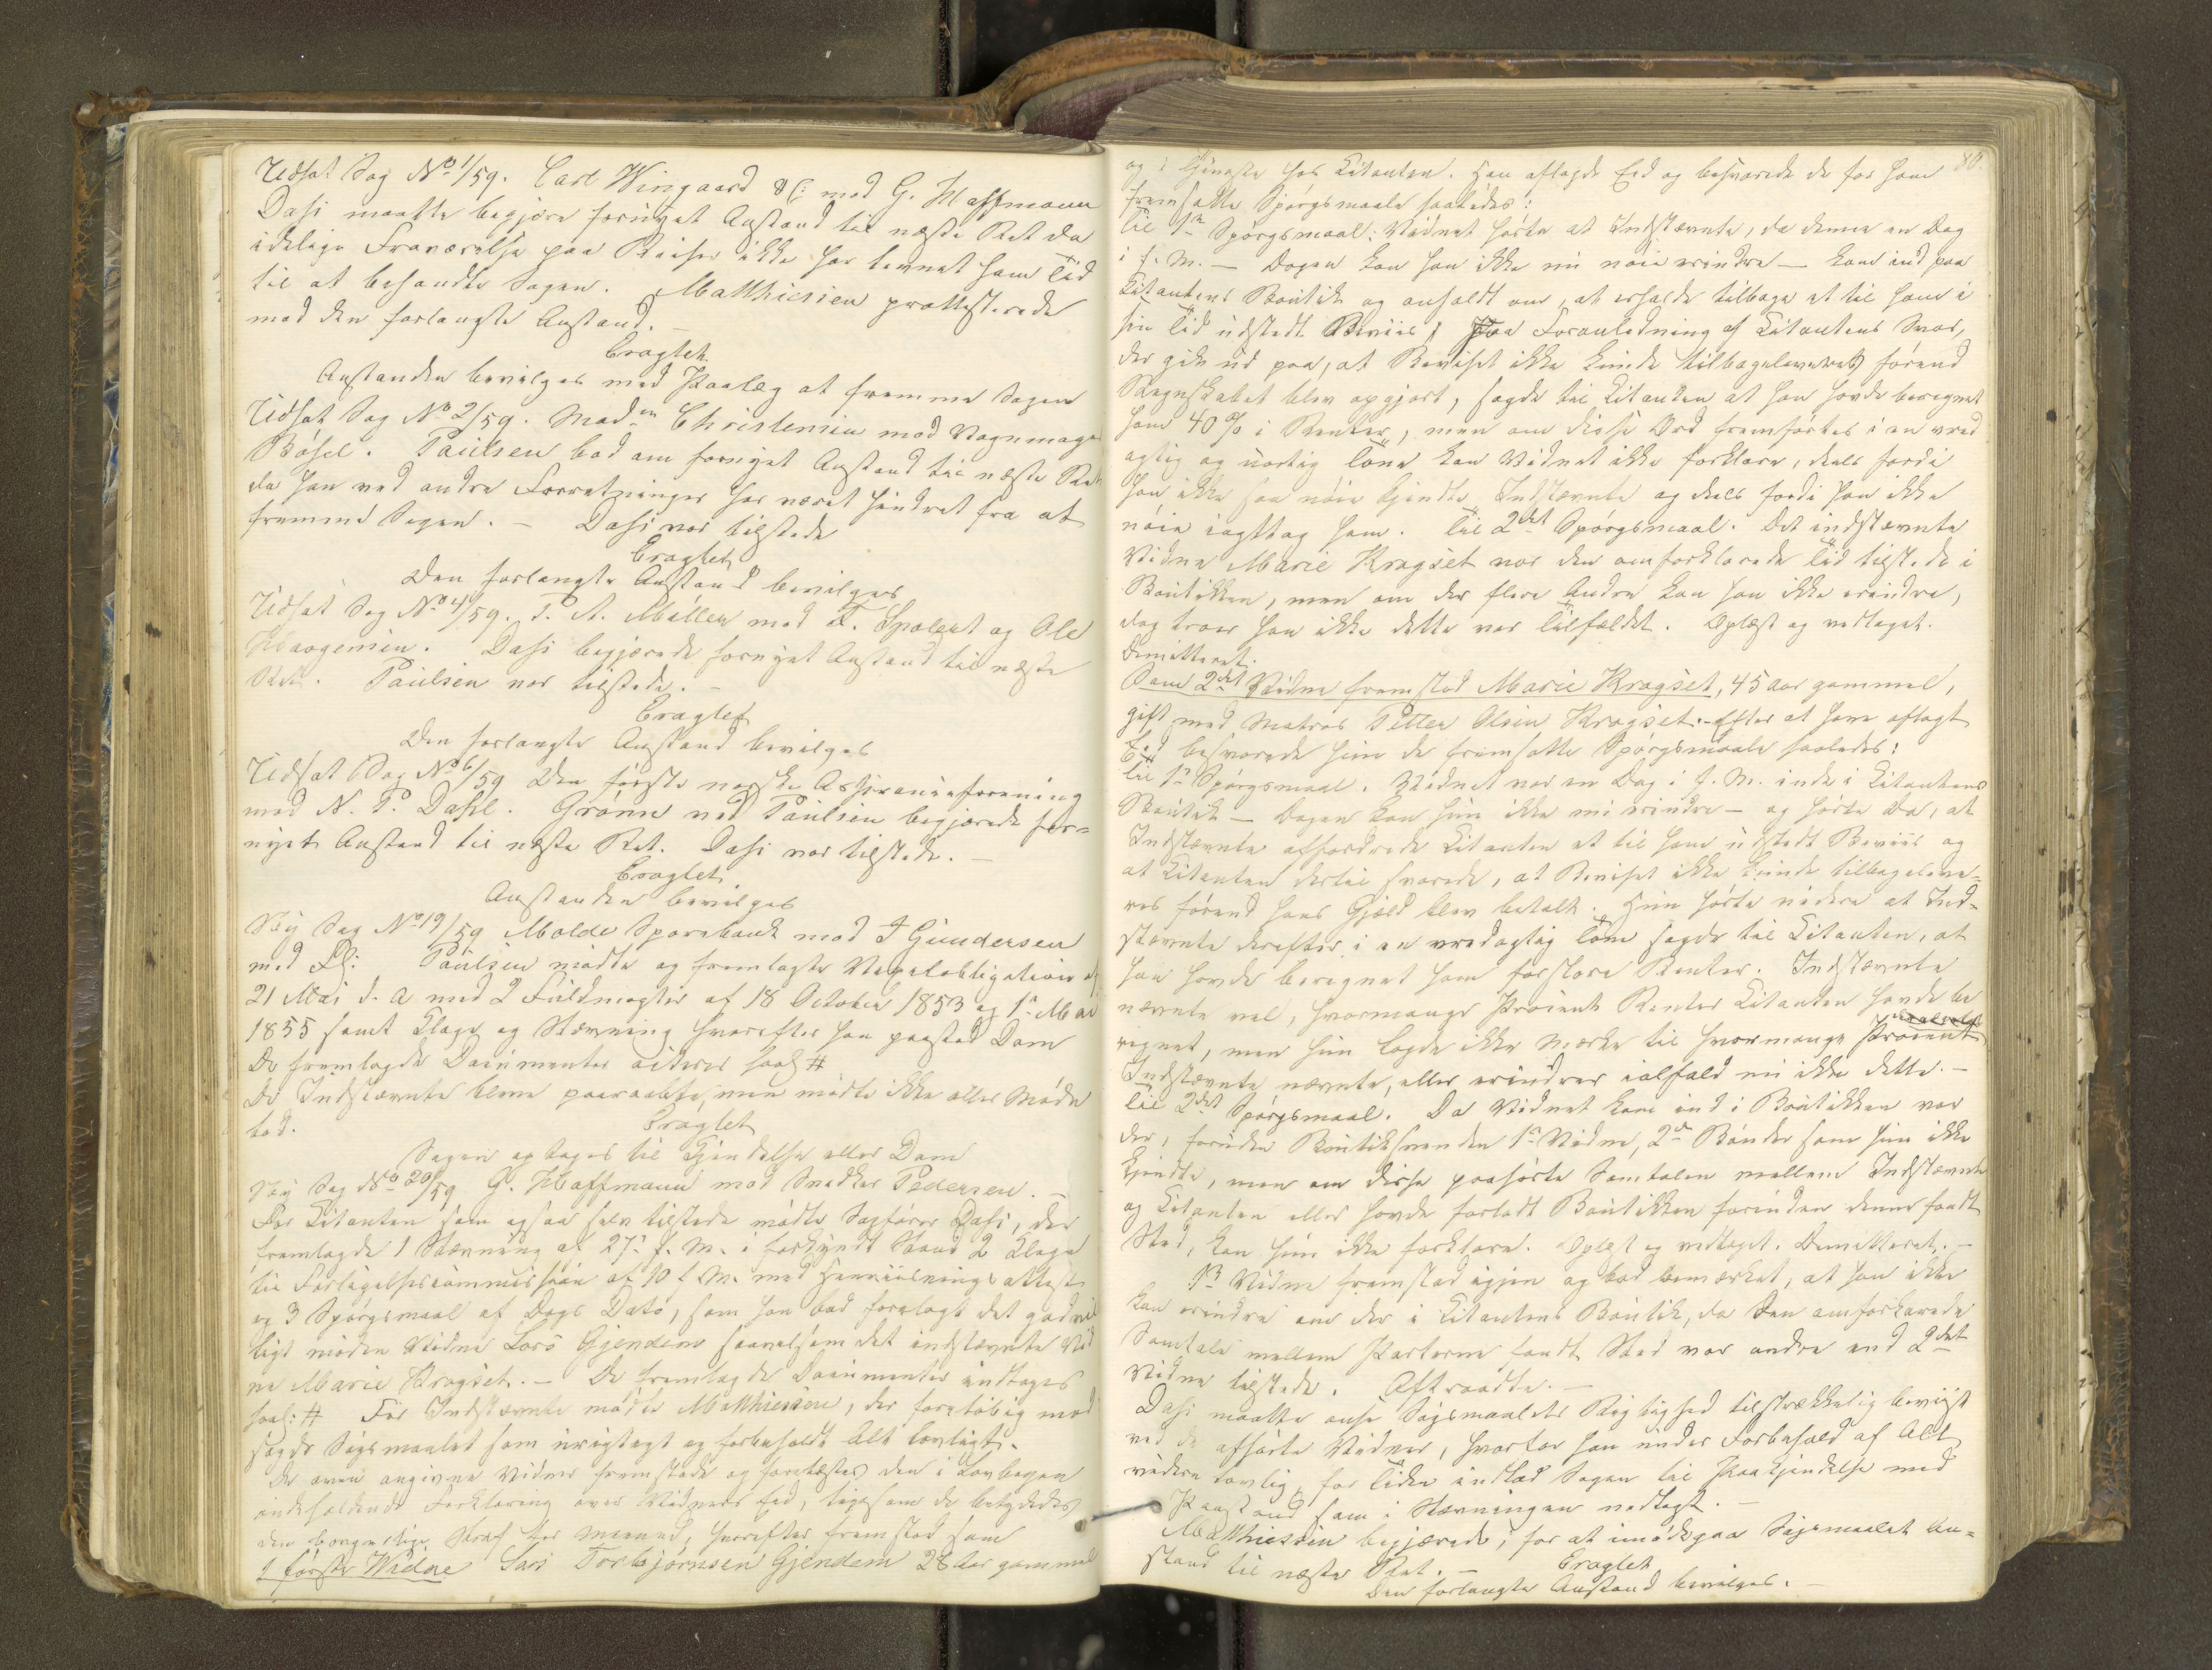 Udsat Sag No 1/59. Carl Wingaard &c: mod G. Hoffmann
Dahl maatte begjære fornyet Anstand til næste Ret da
idelige Fraværelse paa Reiser ikke har levnet ham Tid
til at behandle Sagen. Matthiesien protesterede
mod den forlangte Anstand. —
Eragtet
Anstanden bevilges med Paalæg at fremme Sagen
Udsat Sag No 2/59. Madm Christensen mod Vognmager
Bósel. Paulsen bad om fornyet Anstand til næste Ret
da han ved andre Forretninger har været hindret fra at
fremme Sagen. — Dahl var tilstede
Eragtet
Den forlangte Anstand bevilges
Udsat Sag No 4/59. P. A. Müller mod F. Spolert og Ole
Haagensen. Dahl begjærede fornyet Anstand til næste
Ret. Paulsen var tilstede. —
Eragtet
Den forlangte Anstand bevilges
Udsat Sag No 6/59 Den første norske Assuranceforening
mod N. P. Dahl. Grønn ved Paulsen begjærede for=
nyet Anstand til næste Ret. Dahl var tilstede. —
Eragtet
Anstanden bevilges
Ny Sag No 19/59 Molde Sparebank mod I Gundersen
med Fl: Paulsen mødte og fremlagte Vexelobligation af
21 Mai d. A med 2 Fuldmagter af 18 October 1853 og 1ste Mai
1855 samt Klage og Stævning hvorefter han paastod Dom
De fremlagde Documenter acteres saal #
De Indstævnte bleve paaraabte, men mødte ikke eller Møde
lod. Eragtet
Sagen optages til Kjendelse eller Dom
Ny Sag No 20/59 G. Hoffmann mod Snedker Pedersen. —
For Citanten som ogsaa selv tilstede mødte Sagfører Dahl, der
fremlagde 1 Stævning af 27de f. M. i forkyndt Stand 2 Klage
til Forligelsescommissionen af 10 f. M. med Henviisningsattest
og 3 Spørgsmaal af Dags Dato, som han bad forelagt det godvil
ligt mødende Vidne Lars Gjendem saavelsom det indstævnte Vid
ne Marie Kragset. — De fremlagde Documenter indtages
saal: # For Indstævnte mødte Matthiessen, der foreløbig mod
sagde Søgsmaalet som urigtigt og forbeholdt Alt lovligt.
De oven angivne Vidner fremstode og forelæstes den i Lovbogen
indeholdende Forklaring over Vidners Eed, ligesom de betydedes
den borgerlige Straf for Meened, hvorefter fremstod som
1 første Vidne Lars Torbjørnsen Gjendem 28 Aar gammel
80.
og i Tjeneste hos Citanten. Han aflagde Eed og besvarede de for ham
fremsatte Spørgsmaale saaledes:
Til 1ste Spørgsmaal: Vidnet hørte at Indstævnte, da denne en Dag
i f. M. — Dagen kan han ikke nu nøie erindre — kom ind paa
Citantens Boutik og anholdt om, at erholde tilbage et til ham i
sin Tid udstedt Beviis, paa Foranledning af Citantens Svar,
der gik ud paa, at Beviset ikke kunde tilbageleveres førend
Regnskabet blev opgjort, sagde til Citanten at han havde beregnet
ham 40 % i Renter, men om disse Ord fremførtes i en vred
agtig og hastig Tone kan Vidnet ikke forklare, deels fordi
han ikke saa nøie kjendte Indstævnte og deels fordi han ikke
nøie iagttog ham. Til 2det Spørgsmaal. Det indstævnte
Vidne Marie Kragset var den omforklarede Tid tilstede i
Boutikken, men om der flere Andre kan han ikke erindre,
dog troer han ikke dette var Tilfældet. Oplæst og vedtaget.
Demitteret.
Som 2det Vidne fremstod Marie Kragset, 45 Aar gammel,
gift med Matros Petter Olsen Kragset. Efter at have aflagt
Eed besvarede hun de fremsatte Spørgsmaale saaledes:
Til 1ste Spørgsmaal. Vidnet var en Dag i f. M. inde i Citantens
Boutik — Dagen kan hun ikke nu erindre — og hørte da, at
Indstævnte affordrede Citanten et til ham udstedt Beviis og
at Citanten dertil svarede, at Beviset ikke kunde tilbageleve=
res førend hans Gjæld blev betalt. Hun hørte videre at Ind=
stævnte derefter i en vredagtig Tone sagde til Citanten, at
han havde beregnet ham for store Renter. Indstævnte
nævnte vel, hvormange Procent Renter Citanten havde be
regnet, men hun lagde ikke Mærke til hvormange Procent
Indstævnte nævnte, eller erindrer ialfald nu ikke dette. —
Til 2det Spørgsmaal. Da Vidnet kom ind i Boutikken var
der, foruden Boutiksvenden 1ste Vidne, 2de Bønder som hun ikke
kjendte, men om disse paahørte Samtalen mellem Indstævnte
og Citanten eller havde forladt Boutikken forinden denne fandt
Sted, kan hun ikke forklare. Oplæst og vedtaget. Demitteret. —
1ste Vidne fremstod igjen og bad bemærket, at han ikke
kan erindre om der i Citantens Boutik, da den omforklarede
Samtale mellem Parterne fandt Sted var andre end 2det
Vidne tilstede. Aftraadte. —
Dahl maatte anse Søgsmaalets Rigtighed tilstrækkelig beviist
ved de afhørte Vidner, hvorfor han under Forbehold af Alt
videre lovlig for Tiden indlod Sagen til Paakjendelse med
Paastand som i Stævningen nedlagt. —
Matthiessen begjærede, for at imødegaa Søgsmaalet An=
stand til næste Ret. — Eragtet
Den forlangte Anstand bevilges. —